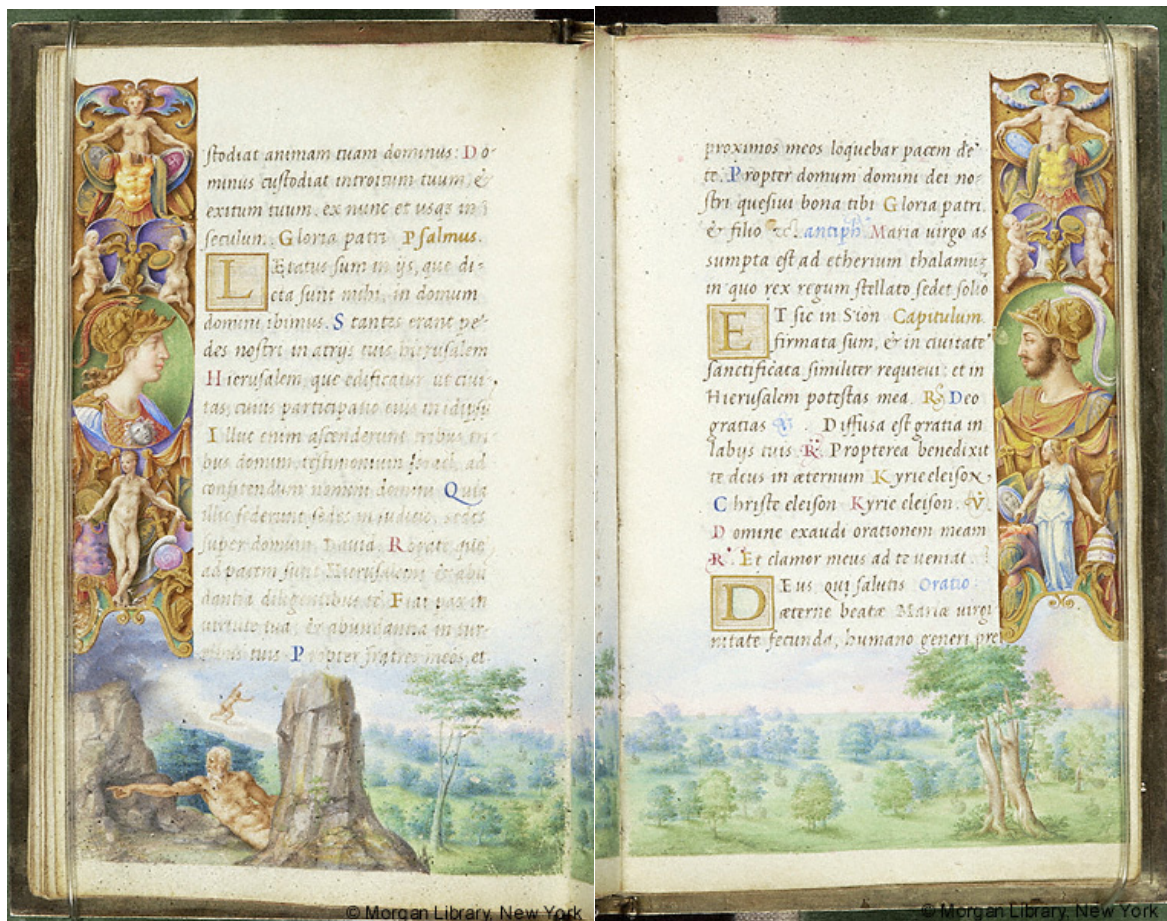 ſtodiat animam tuam dominus: Do-
minus cuſtodiat introitum tuum, &
exitum tuum, ex nunc et usqȝ in
ſeculun. Gloria patri Pſalmus.
LÆtatus ſum in ijs, que di-
cta ſunt mihi, in domum
domini ibimus. Stantes erant pe-
des noſtri in atrijs tuis hieruſalem
Hieruſalem, que edificatur ut ciui-
tas, cuius participatio eius in idipſū
Illuc enim aſcenderunt tribus tri-
bus domini, teſtimonium Iſrael, ad
confitendum nomini domini Quia
illic ſederunt ſedes in iudicio, ſedes
ſuper domum Dauid. Rogate que
ad pacem ſunt Hieruſalem & abū
dantia diligentibus te. Fiat pax in
uirtute tua, & abundantia in tur-
tuis Propter fratres meos, et
proximos meos loquebar pacem de
te. Propter domum domini dei no-
ſtri queſiui bona tibi Gloria patri.
& filio antiph Maria uirgo as
sumpta eſt ad etherium thalamuȝ
in quo rex regum ſtellato ſedet ſolio
ET ſic in Sion Capitulum.
firmata ſum, & in ciuitate
ſanctificata ſimiliter requieui: et in
Hieruſalem poteſtas mea. R Deo
gratias V. Diffuſa eſt gratia in
labijs tuis R. Propterea benedixit
te deus in æternum Kyrie eleiſon,
Chriſte eleiſon. Kyrie eleiſon. V
Domine exaudi orationem meam
R. Et clamor meus ad te ueniat.
DEus qui ſalutis Oratio
æterne beatæ Mariæ uirgi
nitate fecunda, humano generi pre
© Morgan Library, New York
© Morgan Library, New York